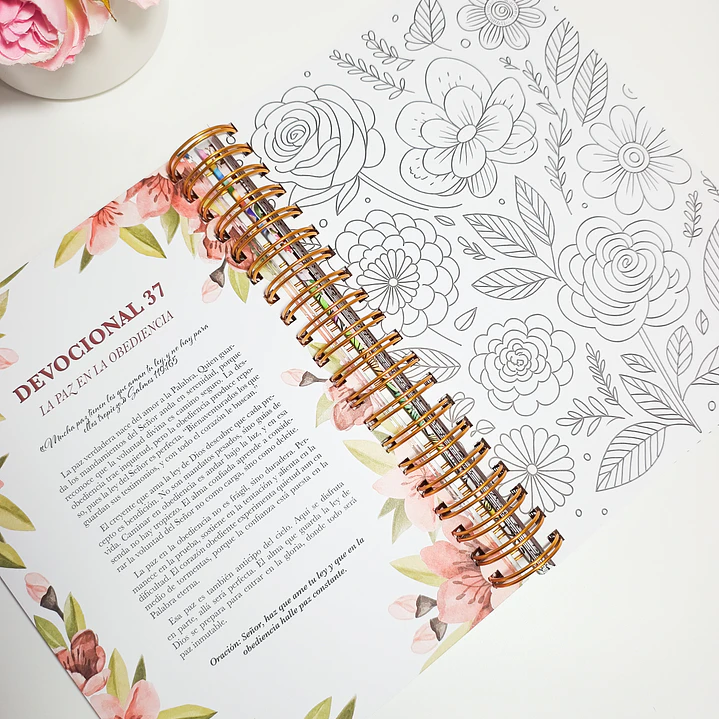 DEVOCIONAL 37
LA PAZ EN LA OBEDIENCIA
«Mucha paz tienen los que aman tu ley, y no hay para
ellos tropiezo» Salmos 119:165
La paz verdadera nace del amor a la Palabra. Quien guar-
da los mandamientos del Señor anda en serenidad, porque
reconoce que la voluntad divina es camino seguro. La des-
obediencia trae inquietud, pero la obediencia produce repo-
so, pues la ley del Señor es perfecta. "Bienaventurados los que
guardan sus testimonios, y con todo el corazón le buscan."
El creyente que ama la ley de Dios descubre que cada pre-
cepto es bendición. No son mandatos pesados, sino guías de
vida. Caminar en obediencia es andar bajo la luz, y en esa
senda no hay tropiezo. El alma confiada aprende a conside-
rar la voluntad del Señor no como carga, sino como deleite.
La paz en la obediencia no es frágil, sino duradera. Per-
manece en la prueba, sostiene en la tentación y alienta en la
dificultad. El corazón obediente experimenta quietud aun en
medio de tormentas, porque la confianza está puesta en la
Palabra eterna.
Esa paz es también anticipo del cielo. Aquí se disfruta
en parte, allá será perfecta. El alma que guarda la ley de
Dios se prepara para entrar en la gloria, donde todo será
paz inmutable.
Oración: Señor, haz que ame tu ley y que en la
obediencia halle paz constante.